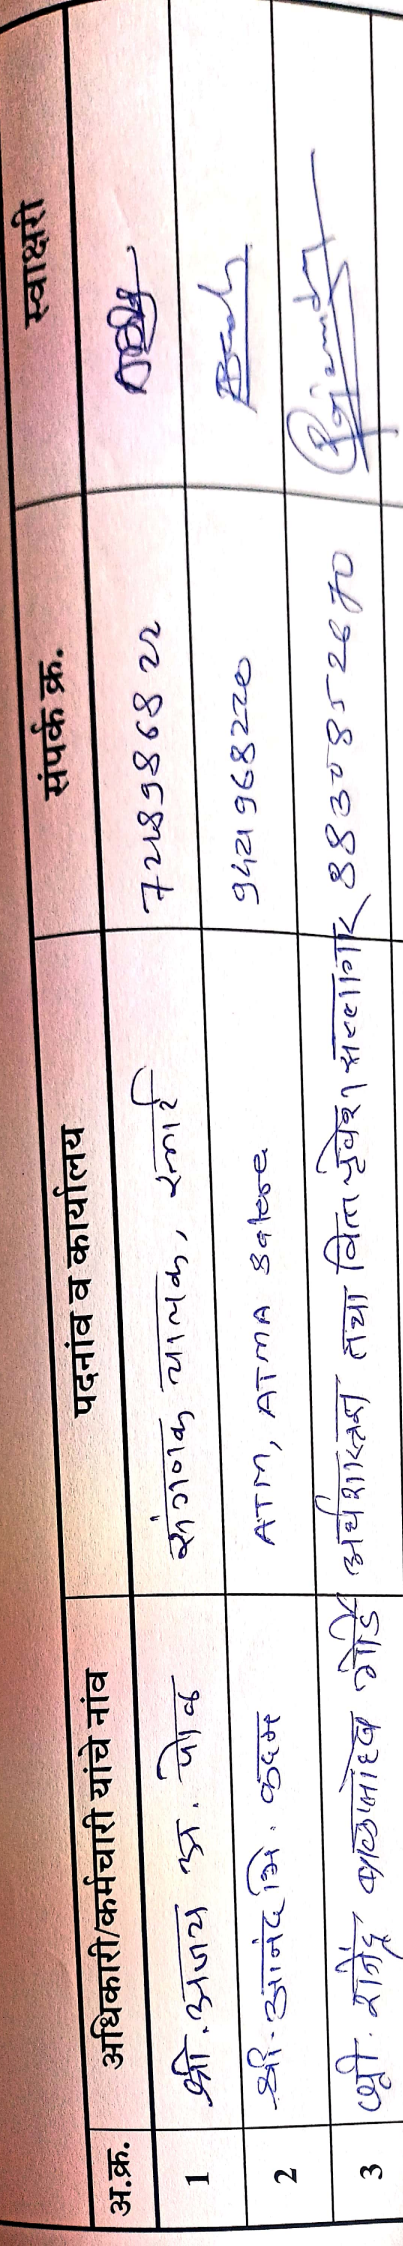 अ.क्र. अधिकारी/कर्मचारी यांचे नांव पदनांव व कार्यालय संपर्क क्र. स्वाक्षरी
1 श्री. अजय अ. पोळ संगणक चालक, स्मार्ट 7218986822
2 श्री. आनंद भि. कदम ATM, ATMA 9421968220
3 श्री. राजेंद्र बाळासाहेब गोर्डे अर्थशास्त्रज्ञ तथा वित्त सल्लागार 8830852670